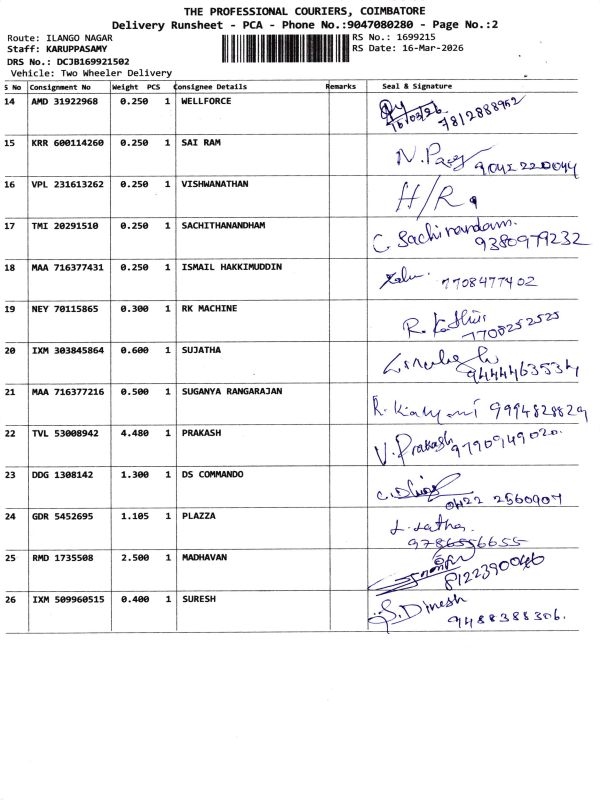 THE PROFESSIONAL COURIERS, COIMBATORE
Delivery Runsheet - PCA - Phone No.:9047080280 - Page No.:2
Route: ILANGO NAGAR RS No.: 1699215
Staff: KARUPPASAMY RS Date: 16-Mar-2026
DRS No.: DCJB169921502
Vehicle: Two Wheeler Delivery
S No Consignment No Weight PCS Consignee Details Remarks Seal & Signature
14 AMD 31922968 0.250 1 WELLFORCE
16/03/26 7812888952
15 KRR 600114260 0.250 1 SAI RAM
N. 9042220044
16 VPL 231613262 0.250 1 VISHWANATHAN H/R
17 TMI 20291510 0.250 1 SACHITHANANDHAM
C. Sachinandam.
9380979232
18 MAA 716377431 0.250 1 ISMAIL HAKKIMUDDIN
7708477402
19 NEY 70115865 0.300 1 RK MACHINE
R. Kathir
7708252525
20 IXM 303845864 0.600 1 SUJATHA
9444463534
21 MAA 716377216 0.500 1 SUGANYA RANGARAJAN
R. Kalyani 9994828829
22 TVL 53008942 4.480 1 PRAKASH
V. Prakash 9790949020.
23 DDG 1308142 1.300 1 DS COMMANDO
0422 2560907
24 GDR 5452695 1.105 1 PLAZZA
L. Latha.
9786556655
25 RMD 1735508 2.500 1 MADHAVAN
8122390046
26 IXM 509960515 0.400 1 SURESH
S. Dinesh
9488388306.